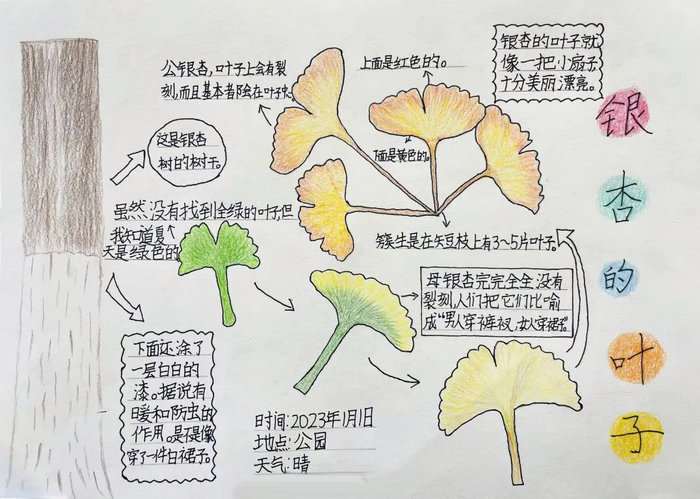 公银杏，叶子上会有裂
刻，而且基本都会在叶子中。
上面是红色的。
银杏的叶子就
像一把小扇子
十分美丽漂亮。
银
杏
的
叶
子
这是银杏
树的树干。
下面是黄色的。
虽然没有找到全绿的叶子，但
我知道夏
天是绿色的
簇生是在短枝上有3~5片叶子。
母银杏完完全全没有
裂刻，人们把它们比喻
成“男人穿裤衩，女人穿裙”。
下面还涂了
一层白白的
漆。据说有
暖和防虫的
作用。是不是像
穿了一件白裙子。
时间：2023年1月1日
地点：公园
天气：晴